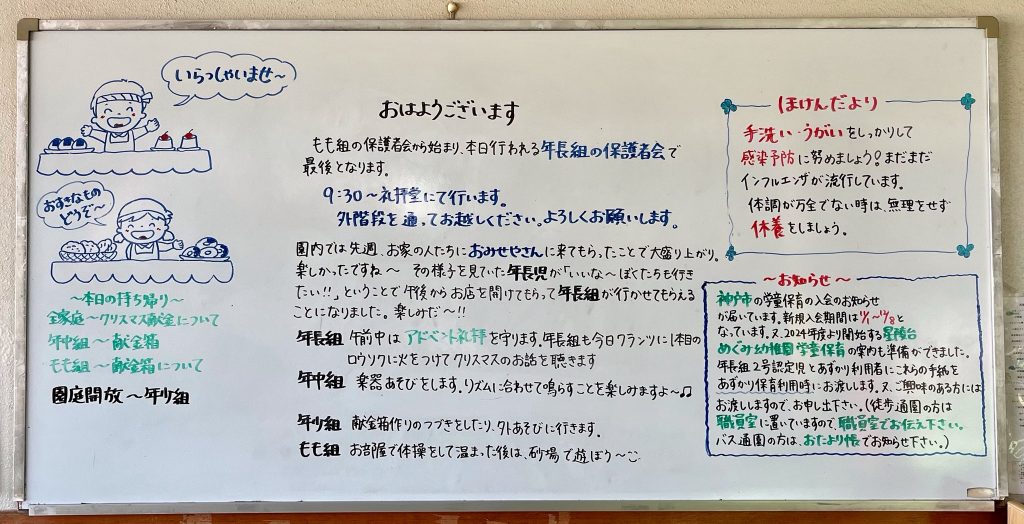 いらっしゃいませ～
おすきなもの
どうぞ～
～本日の持ち帰り～
全家庭～クリスマス献金について
年中組～献金箱
もも組～献金箱について
園庭開放～年少組
おはようございます
もも組の保護者会から始まり、本日行われる年長組の保護者会で
最後となります。
9:30～礼拝堂にて行います。
外階段を通ってお越しください。よろしくお願いします。
園内では先週、お家の人たちにおみせやさんに来てもらったことで大盛り上がり。
楽しかったですね～ その様子を見ていた年長児が「いいな～ぼくたちも行き
たい!!」ということで午後からお店を開けてもらって年長組が行かせてもらえる
ことになりました。楽しみだ～!!
年長組 午前中はアドベント礼拝を守ります。年長組も今日クランツに1本目の
ロウソクに火をつけてクリスマスのお話を聴きます
年中組 楽器あそびをします。リズムに合わせて鳴らすことを楽しみますよ～♫
年少組 献金箱作りのつづきをしたり、外あそびに行きます。
もも組 お部屋で体操をして温まった後は、砂場で遊ぼう～
ほけんだより
手洗い・うがいをしっかりして
感染予防に努めましょう!まだまだ
インフルエンザが流行しています。
体調が万全でない時は、無理をせず
休養をしましょう。
～お知らせ～
神戸市の学童保育の入会のお知らせ
が届いています。新規入会期間は
なっています。又、2024年度より開始する星陵台
めぐみ幼稚園学童保育の案内も準備ができました。
年長組2号認定児とあずかり利用者にこれらの手紙を
あずかり保育利用時にお渡しします。又、ご興味のある方には
お渡ししますので、お申し出下さい。(徒歩通園の方は
職員室に置いていますので、職員室でお伝え下さい。
バス通園の方は、おたより帳でお知らせ下さい。)